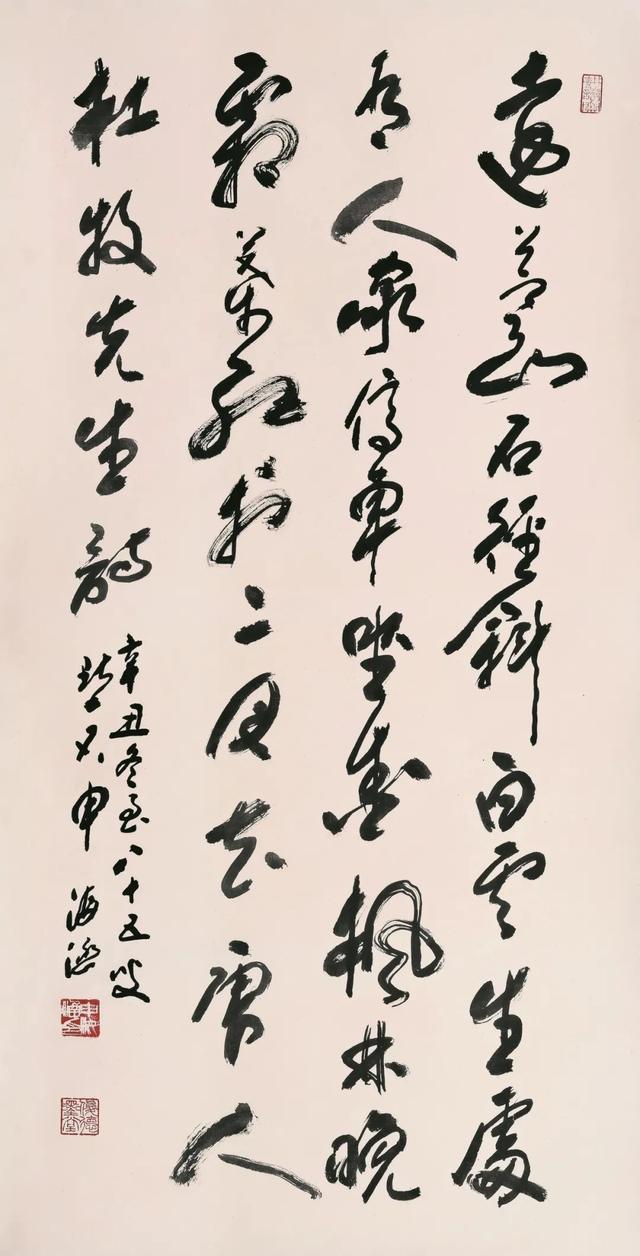 遠上寒山石徑斜白雲生處
有人家停車坐愛楓林晚
霜葉紅於二月花唐人
杜牧先生詩
辛丑冬至八十五叟
申海